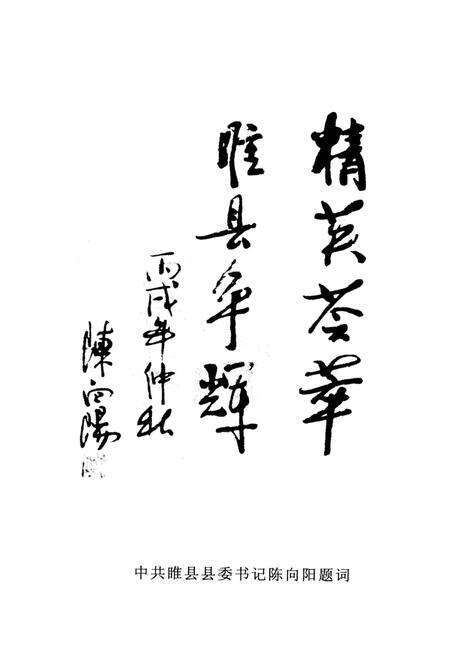 精英荟萃
睢县争辉
丙戌年仲秋
陈向阳
中共睢县县委书记陈向阳题词